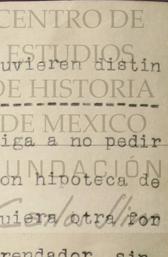 CENTRO DE
ESTUDIOS
uvieren distin
DE HISTORIA
DE MEXICO
iga a no pedir
FUNDACIÓN
on hipoteca de
Carlos Slim
quiera otra for
rrendador, sin